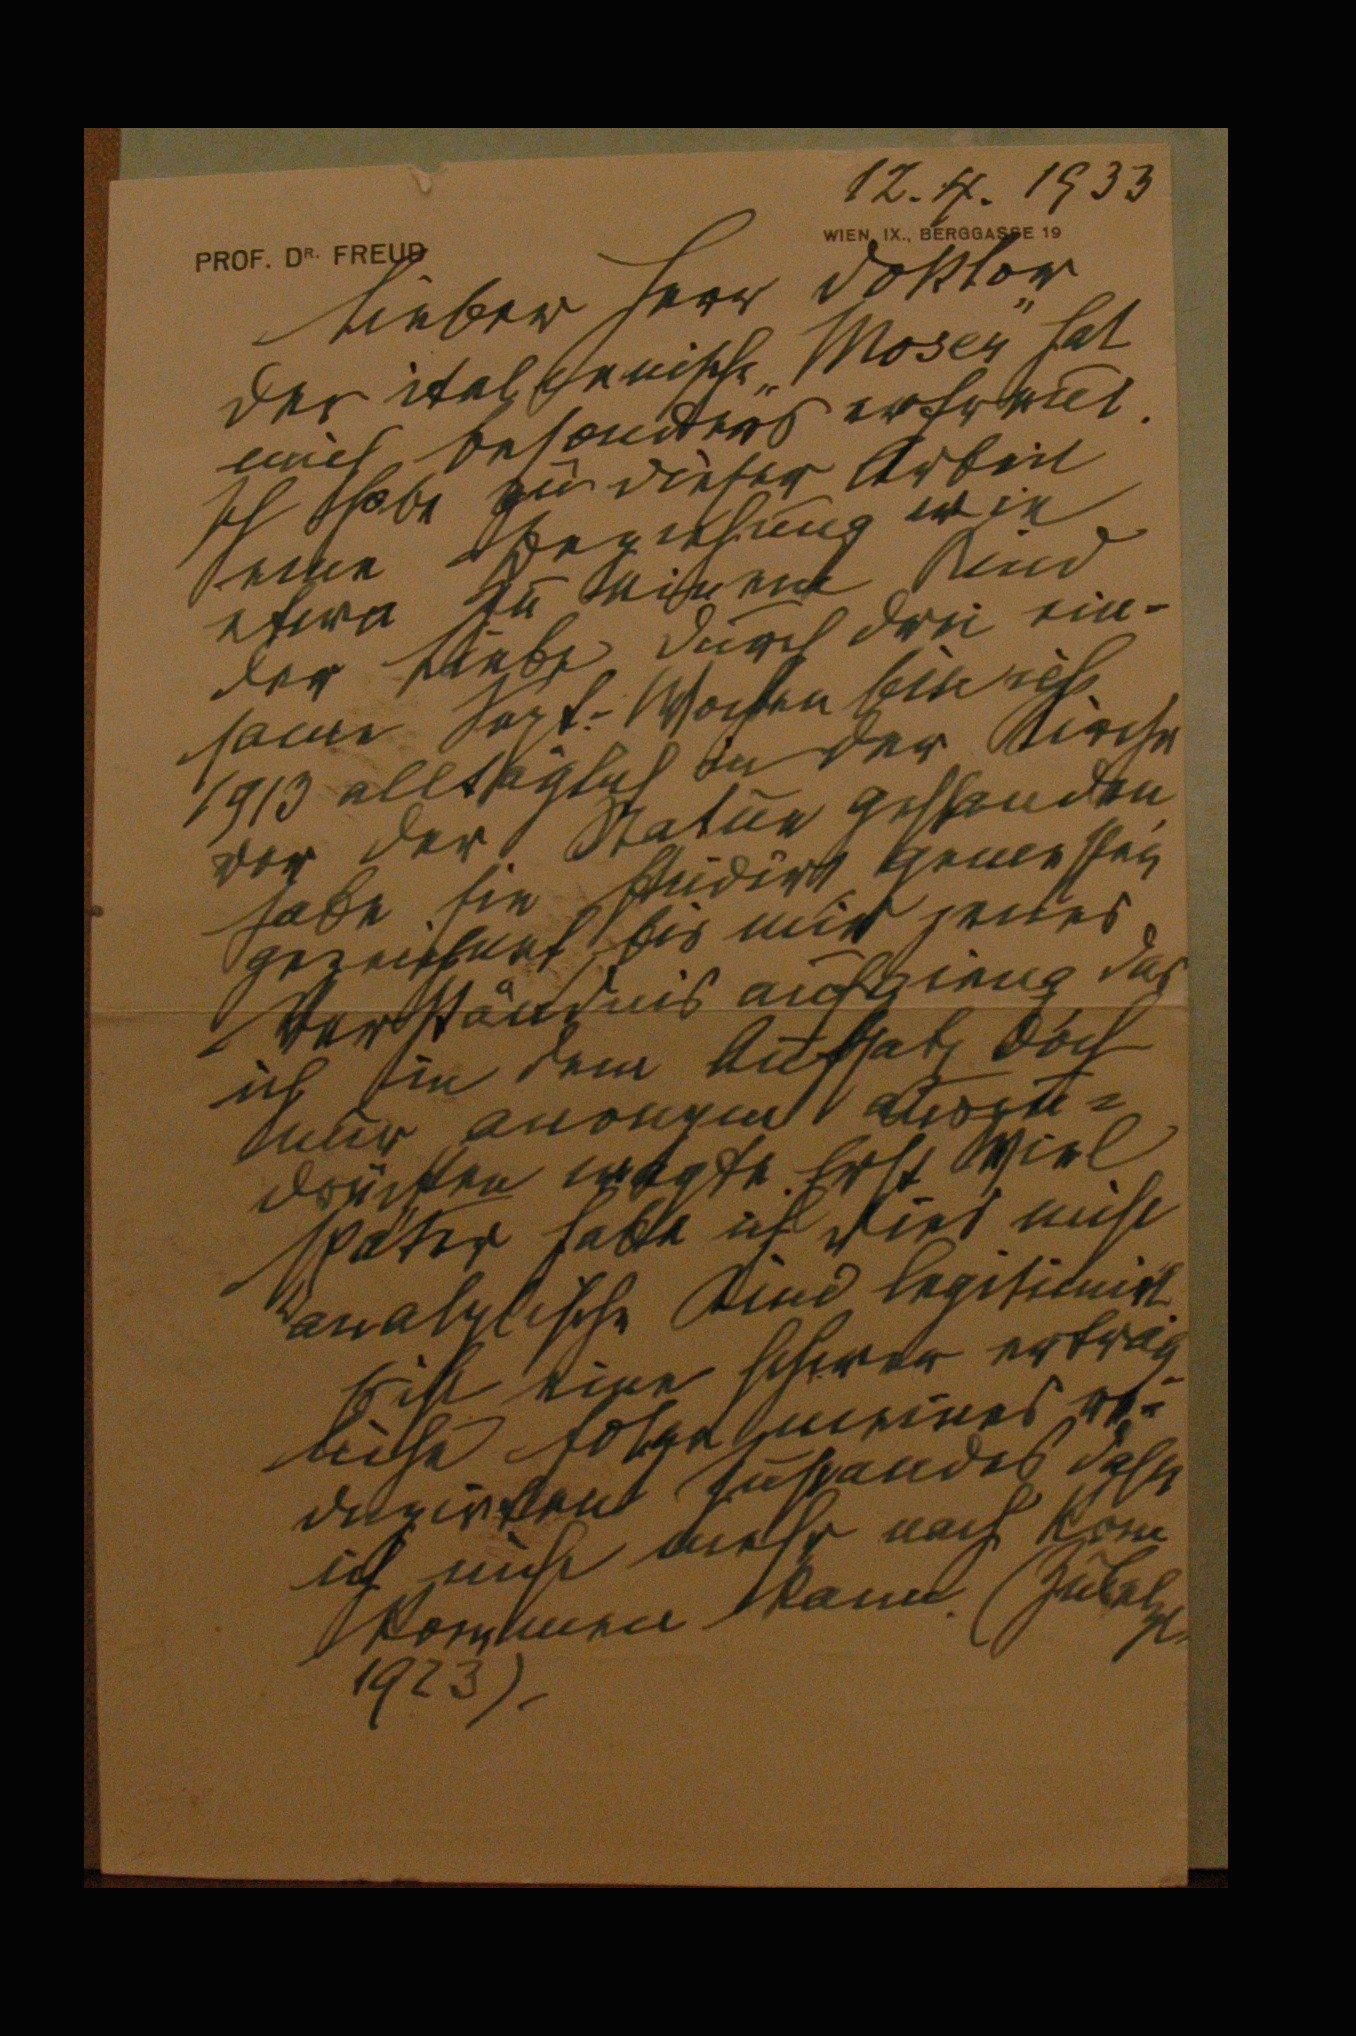 12.4.1933
PROF. DR. FREUD
WIEN, IX., BERGGASSE 19
Lieber Herr Doktor
Der italienische „Moses“ hat
mich besonders erfreut.
Ich habe zu dieser Arbeit
eine Beziehung wie
etwa zu einem Kind
der Liebe. Durch drei ein-
same Sept.-Wochen bin ich
1913 alltäglich in der Kirche
vor der Statue gestanden,
habe sie studirt gemessen,
gezeichnet, bis mir jenes
Verständnis aufgieng das
ich in dem Aufsatz doch
nur anonym auszu-
drücken wagte. Erst viel
später habe ich dies nicht
analytische Kind legitimirt.
Es ist eine schwer erträg
liche Folge meines re-
duzirten Zustandes daß
ich nicht mehr nach Rom
kommen kann. (Zuletzt
1923).-